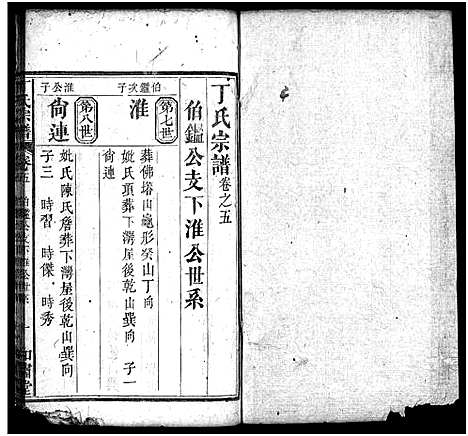 丁氏宗譜卷之五
伯鑑公支下淮公世系
第七世
伯鑑次子
淮
葬佛塔山龜形癸山丁向
妣氏項葬下灣屋後乾山巽向 子一
尙連
第八世
淮公子
尙連
妣氏陳氏詹葬下灣屋後乾山巽向
子三 時習 時傑 時秀
丁氏宗譜